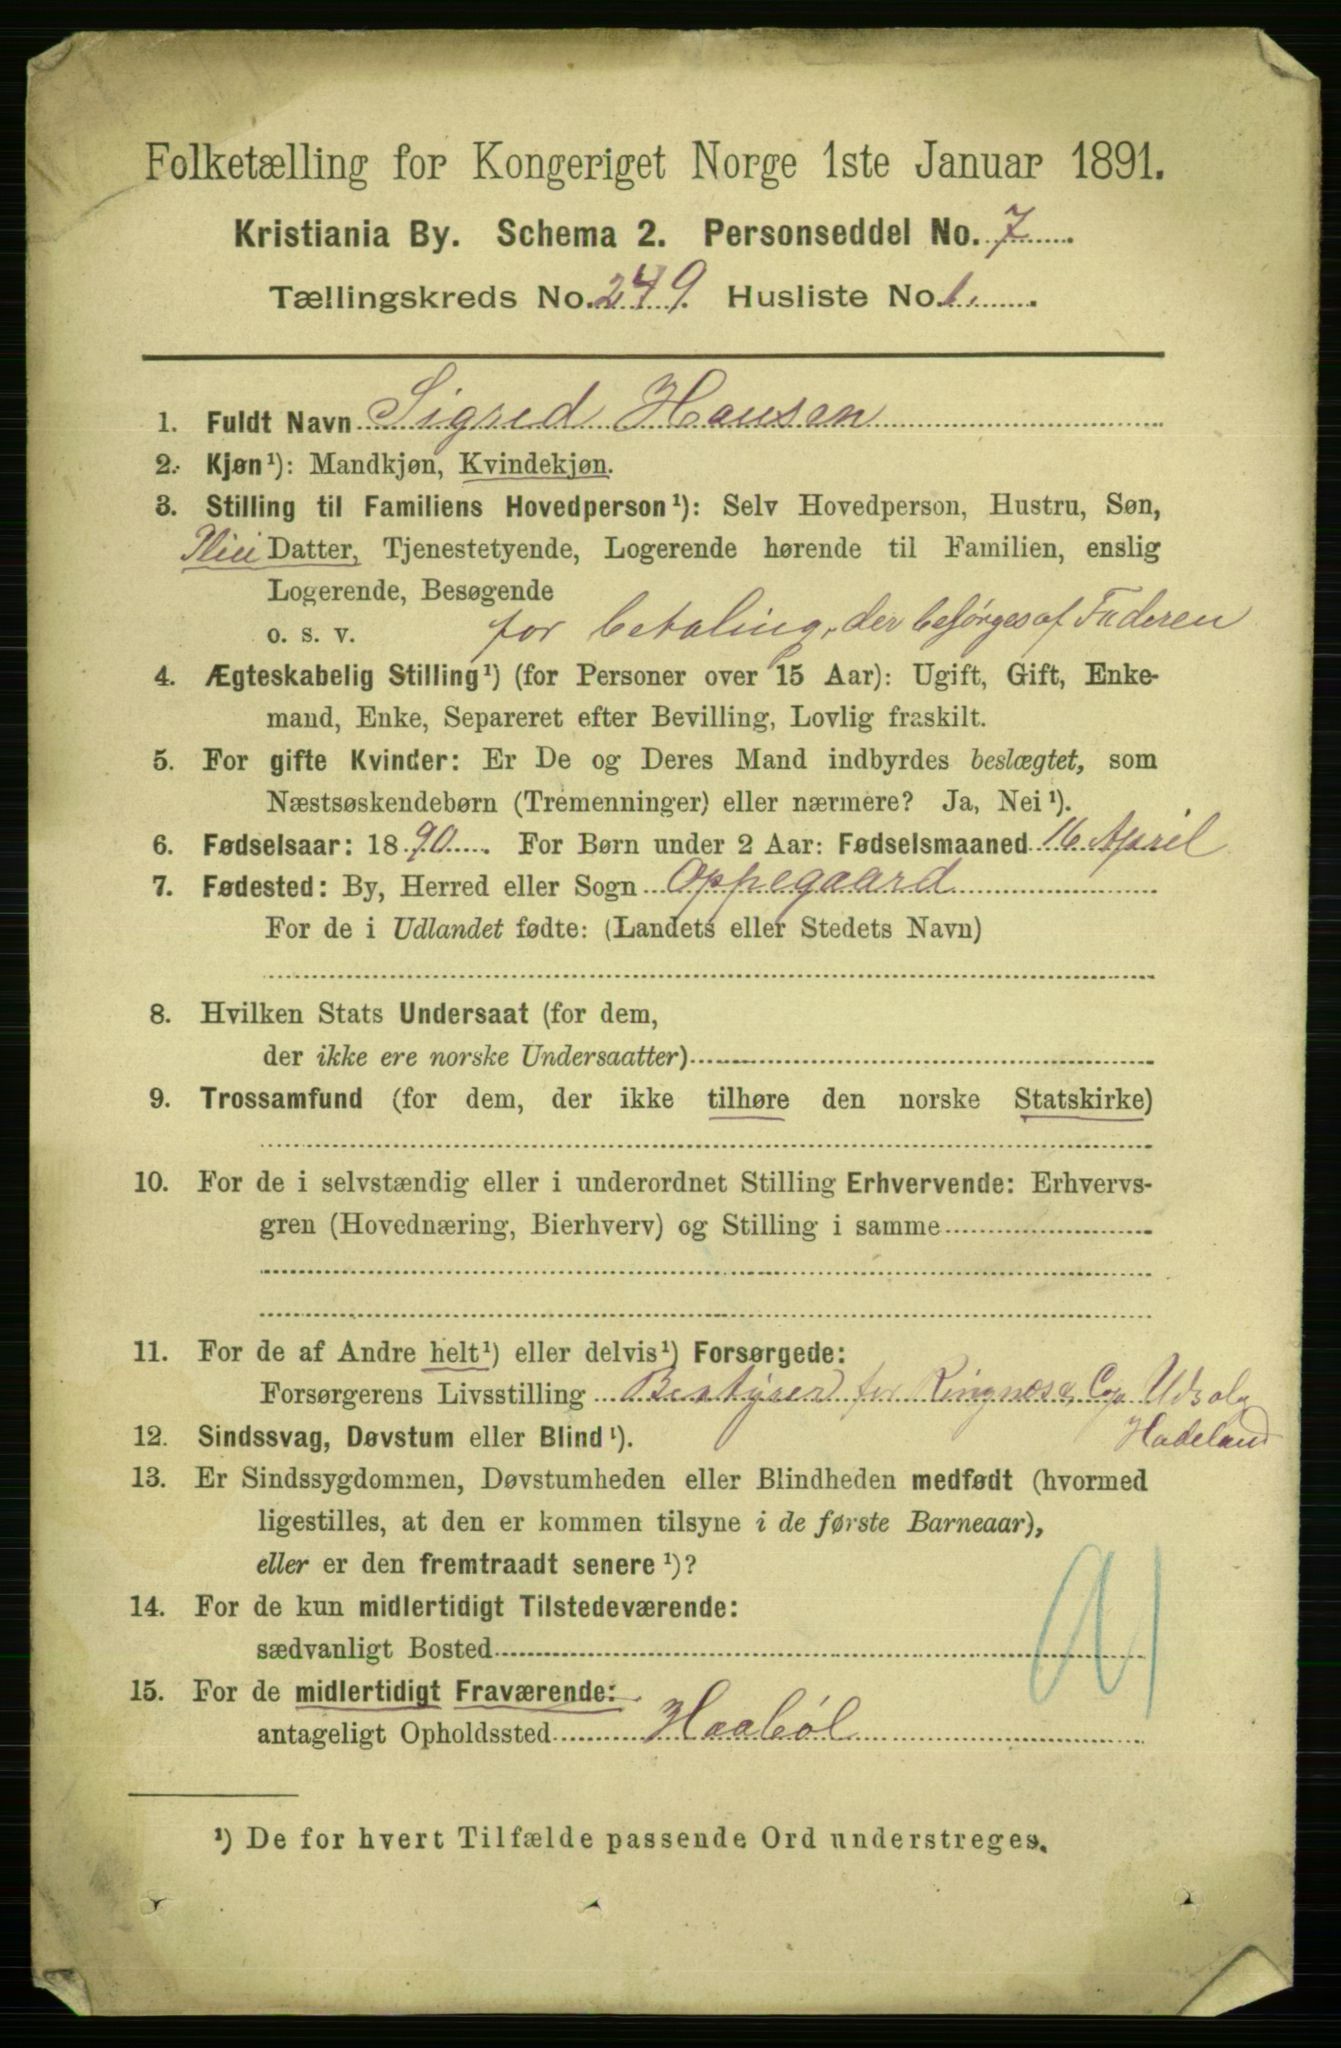 Folketælling for Kongeriget Norge 1ste Januar 1891.
Kristiania By. Schema 2. Personseddel No. 7
Tællingskreds No. 249. Husliste No. 1.
1. Fuldt Navn Sigred Hansen
2. Kjøn¹): Mandkjøn, Kvindekjøn.
3. Stilling til Familiens Hovedperson¹): Selv Hovedperson, Hustru, Søn,
Plei Datter, Tjenestetyende, Logerende hørende til Familien, enslig
Logerende, Besøgende
o. s. v. for betaling, der besørges af Faderen
4. Ægteskabelig Stilling¹) (for Personer over 15 Aar): Ugift, Gift, Enke-
mand, Enke, Separeret efter Bevilling, Lovlig fraskilt.
5. For gifte Kvinder: Er De og Deres Mand indbyrdes beslægtet, som
Næstsøskendebørn (Tremenninger) eller nærmere? Ja, Nei¹).
6. Fødselsaar: 1890. For Børn under 2 Aar: Fødselsmaaned 16 April
7. Fødested: By, Herred eller Sogn Oppegaard
For de i Udlandet fødte: (Landets eller Stedets Navn)
8. Hvilken Stats Undersaat (for dem,
der ikke ere norske Undersaatter)
9. Trossamfund (for dem, der ikke tilhøre den norske Statskirke)
10. For de i selvstændig eller i underordnet Stilling Erhvervende: Erhvervs-
gren (Hovednæring, Bierhverv) og Stilling i samme
11. For de af Andre helt¹) eller delvis¹) Forsørgede:
Forsørgerens Livsstilling Bestyrer for Ringnes & Co Udsalg
Hadeland
12. Sindssvag, Døvstum eller Blind¹).
13. Er Sindssygdommen, Døvstumheden eller Blindheden medfødt (hvormed
ligestilles, at den er kommen tilsyne i de første Barneaar),
eller er den fremtraadt senere¹)?
14. For de kun midlertidigt Tilstedeværende:
sædvanligt Bosted
15. For de midlertidigt Fraværende:
antageligt Opholdssted Haabøl
¹) De for hvert Tilfælde passende Ord understreges.